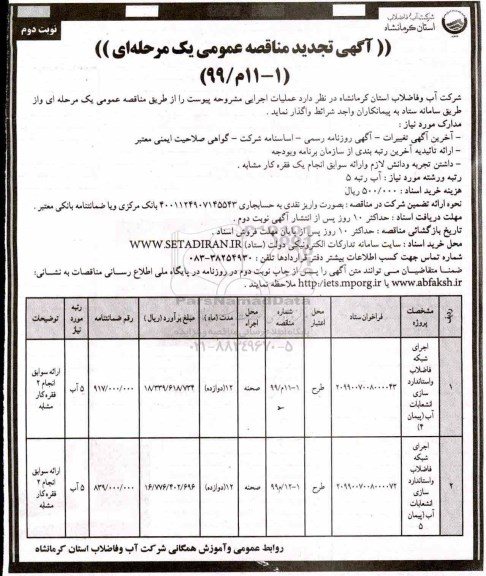 شرکت آب و فاضلاب
استان کرمانشاه
نوبت دوم
(( آگهی تجدید مناقصه عمومی یک مرحله‌ای ))
(۱-۱۱م/۹۹)
شرکت آب وفاضلاب استان کرمانشاه در نظر دارد عملیات اجرایی مشروحه پیوست را از طریق مناقصه عمومی یک مرحله ای واز
طریق سامانه ستاد به پیمانکاران واجد شرائط واگذار نماید .
مدارک مورد نیاز :
- آخرین آگهی تغییرات - آگهی روزنامه رسمی - اساسنامه شرکت - گواهی صلاحیت ایمنی معتبر
- ارائه تائیدیه آخرین رتبه بندی از سازمان برنامه وبودجه
- داشتن تجربه ودانش لازم وارائه سوابق انجام یک فقره کار مشابه .
رتبه ورشته مورد نیاز : آب رتبه ۵
هزینه خرید اسناد : ۵۰۰/۰۰۰ ریال
نحوه ارائه تضمین شرکت در مناقصه : بصورت واریز نقدی به حسابجاری ۴۰۰۱۱۲۴۹۰۷۱۴۵۵۴۳ بانک مرکزی ویا ضمانتنامه بانکی معتبر .
مهلت دریافت اسناد : حداکثر ۱۰ روز پس از انتشار آگهی نوبت دوم .
تاریخ بازگشائی مناقصه : حداکثر ۱۰ روز پس از پایان مهلت فروش اسناد .
محل خرید اسناد : سایت سامانه تدارکات الکترونیکی دولت (ستاد) WWW.SETADIRAN.IR
شماره تماس جهت کسب اطلاعات بیشتر دفتر قراردادها تلفن : ۳۸۲۵۴۹۳۰-۰۸۳
ضمنا متقاضیان می توانند متن آگهی را پس از چاپ نوبت دوم در روزنامه در پایگاه ملی اطلاع رسانی مناقصات به نشانی:
http://iets.mporg.ir یا www.abfaksh.ir ملاحظه نمایند .
ParsNamadData
۰۲۱-۸۸۳۴۹۶۷۰-۵
ردیف مشخصات پروژه فراخوان ستاد محل اعتبار شماره مناقصه محل اجراء مدت (ماه) مبلغ برآورد (ریال) رقم ضمانتنامه رتبه مورد نیاز توضیحات
۱ اجرای شبکه فاضلاب واستاندارد سازی انشعابات آب (پیمان ۴) ۲۰۹۹۰۰۷۰۰۸۰۰۰۰۴۳ طرح ۱-۱۱م/۹۹ صحنه ۱۲(دوازده) ۱۸/۳۳۹/۶۱۸/۷۳۴ ۹۱۷/۰۰۰/۰۰۰ ۵ آب ارائه سوابق انجام ۲ فقره کار مشابه
۲ اجرای شبکه فاضلاب واستاندارد سازی انشعابات آب (پیمان ۵ ۲۰۹۹۰۰۷۰۰۸۰۰۰۰۷۲ طرح ۱-۱۲/م۹۹ صحنه ۱۲(دوازده) ۱۶/۷۷۶/۴۰۲/۶۹۶ ۸۳۹/۰۰۰/۰۰۰ ۵ آب ارائه سوابق انجام ۲ فقره کار مشابه
روابط عمومی وآموزش همگانی شرکت آب وفاضلاب استان کرمانشاه